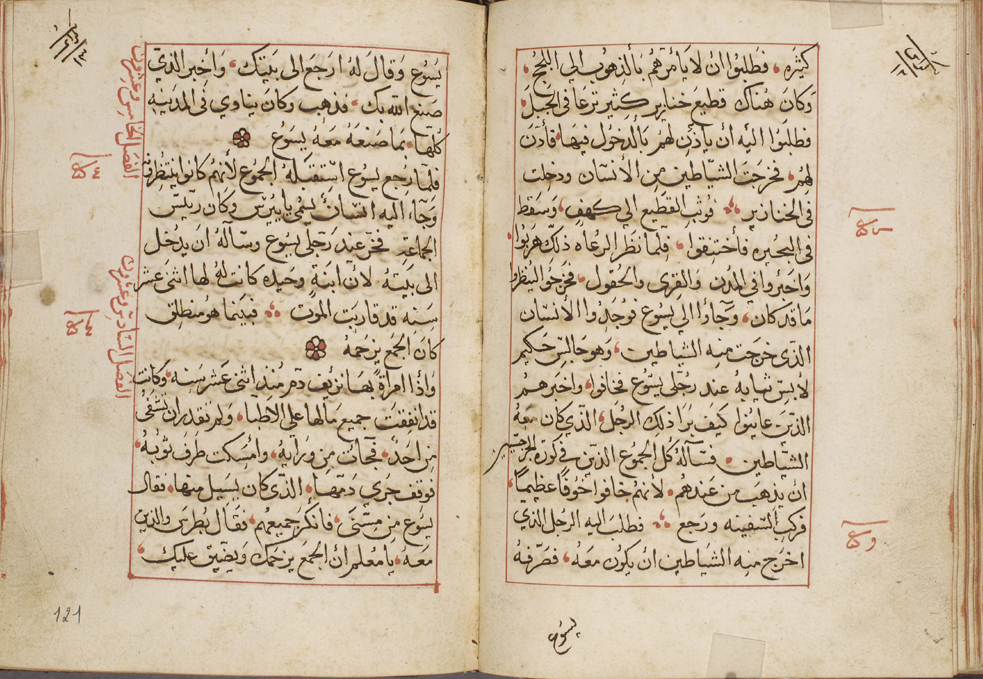 كثيره فطلبوا ان لا يامرهم بالذهوب الي اللجج
وكان هناك قطيع خنازير كثير ترعا في الجبل
فطلبوا اليه ان ياذن لهم بالدخول فيها فاذن
لهم فخرجت الشياطين من الانسان ودخلت
في الخنازير فوثب القطيع الي كهف وسقط
في البحيره فاختنقوا فلما نظر الرعاه ذلك هربوا
واخبروا في المدن والقري والحقول فخرجوا لينظروا
ما قد كان وجآاوا الي يسوع فوجدوا الانسان
الذي خرجت منه الشياطين وهو جالس حكيم
لابس ثيابه عند رجلي يسوع فخافوا واخبرهم
الذين عاينوا كيف برا ذلك الرجل الذي كان معه
الشياطين فسآله كل الجموع الذين في كورة الجرجسيين
ان يذهب من عندهم لانهم خافوا خوفا عظيما
فركب السفينه ورجع فطلب اليه الرجل الذي
اخرج منه الشياطين ان يكون معه فصرفه
يسوع
يسوع وقال له ارجع الي بيتك واخبر الذي
صنع الله بك فذهب وكان يناوي في المدينه
كلها بما صنعه معه يسوع
الفصل الخامس وعشرون
فلما رجع يسوع استقبله الجموع لانهم كانوا ينتظرونه
وجاء اليه انسان يسمي يايرس وكان رييس
الجماعة فخر عند رجلي يسوع وسآله ان يدخل
الي بيته لان ابنة وحيده كانت له لها اثني عشر
سنه قد قاربت الموت فبينما هو منطلق
كان الجمع يزحمه
الفصل السادس وعشرون
واذا امراة بها نزيف دم منذ اثني عشر سنه وكانت
قد انفقت جميع مالها علي الاطبا ولم تقدر ان تشفي
من احد فجات من ورايه وامسكت طرف ثوبه
فوقف جري دمها الذي كان يسيل منها فقال
يسوع من مسني فانكر جميعهم فقال بطرس والذين
معه يا معلم ان الجمع يزحمك ويضيق عليك
121